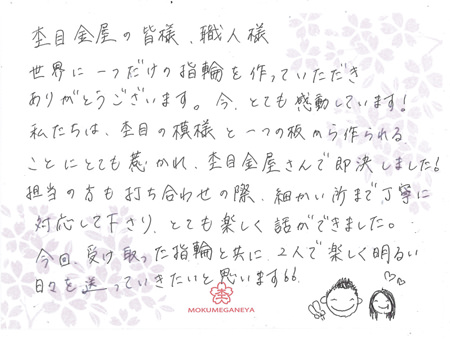 杢目金屋の皆様、職人様
世界に一つだけの指輪を作っていただき
ありがとうございます。今、とても感動しています！
私たちは、杢目の模様と一つの板から作られる
ことにとても惹かれ、杢目金屋さんで即決しました！
担当の方も打ち合わせの際、細かい所まで丁寧に
対応して下さり、とても楽しく話ができました。
今回、受け取った指輪と共に、2人で楽しく明るい
日々を送っていきたいと思います!!
MOKUMEGANEYA